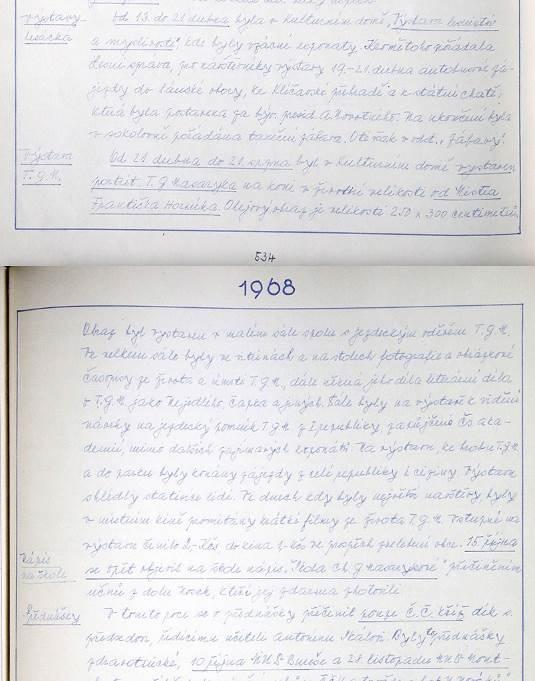 výstavy
lesácká
Od 13. do 21 dubna byla v Kulturním domě „Výstava lesnictví
a myslivosti", kde byly vzácné exponáty. Kromě toho pořádala
lesní správa, pro návštěvníky výstavy 19.-21. dubna autobusové zá-
jezdy do lánské obory, ke Klíčavské přehradě a k státní chatě,
která byla postavena za býv. presid. A. Novotného. Na ukončení byla
v sokolovně pořádána taneční zábava. v odd. „Zábavy".
Výstava
T.G.M.
Od 21. dubna do 21. srpna byl v Kulturním domě vystaven
portrét T.G Masaryka na koni v životní velikosti od Mistra
Františka Horníka. Olejový obraz je velikosti 250 x 300 centimetrů
534
1968
Obraz byl vystaven v malém sále spolu s jezdeckým oděvem T.G.M.
Ve velkém sále byly ve vitrinách a na stolech fotografie a obrázkové
časopisy ze života a úmrtí T.G.M., dále různá jeho díla literární díla
o T.G.M. jako Nejedlého, Čapka a jiných. Dále byly na výstavě k vidění
návrhy na jezdecký pomník T.G.M. z I republiky zapůjčené Čs aka-
demií, mimo dalších zajímavých exponátů. Na výstavu, ke hrobu T.G.M
a do parku byly konány zájezdy z celé republiky i ciziny. Výstavu
shlédly statisíce lidí. Ve dnech kdy byly největší návštěvy byly
v místním kině promítány krátké filmy ze života T.G.M. Vstupné na
výstavu činilo 2,- Kčs do kina 1- Kčs ve prospěch zvelebení obce. 15 října
Nápis
na škole
se opět objevil na škole nápis. "Škola Ch. G Masarykové" přičiněním
učňů z dolu Nosek, kteří jej zdarma zhotovili
Přednášky
V tomto roce se o přednášky přičinil pouze Č.Č. kříž dík s.
předsedovi, řídícímu učiteli Antonínu Byly to přednášky
zdravotnické, 10 října MUDr a 28. listopadu MUDr